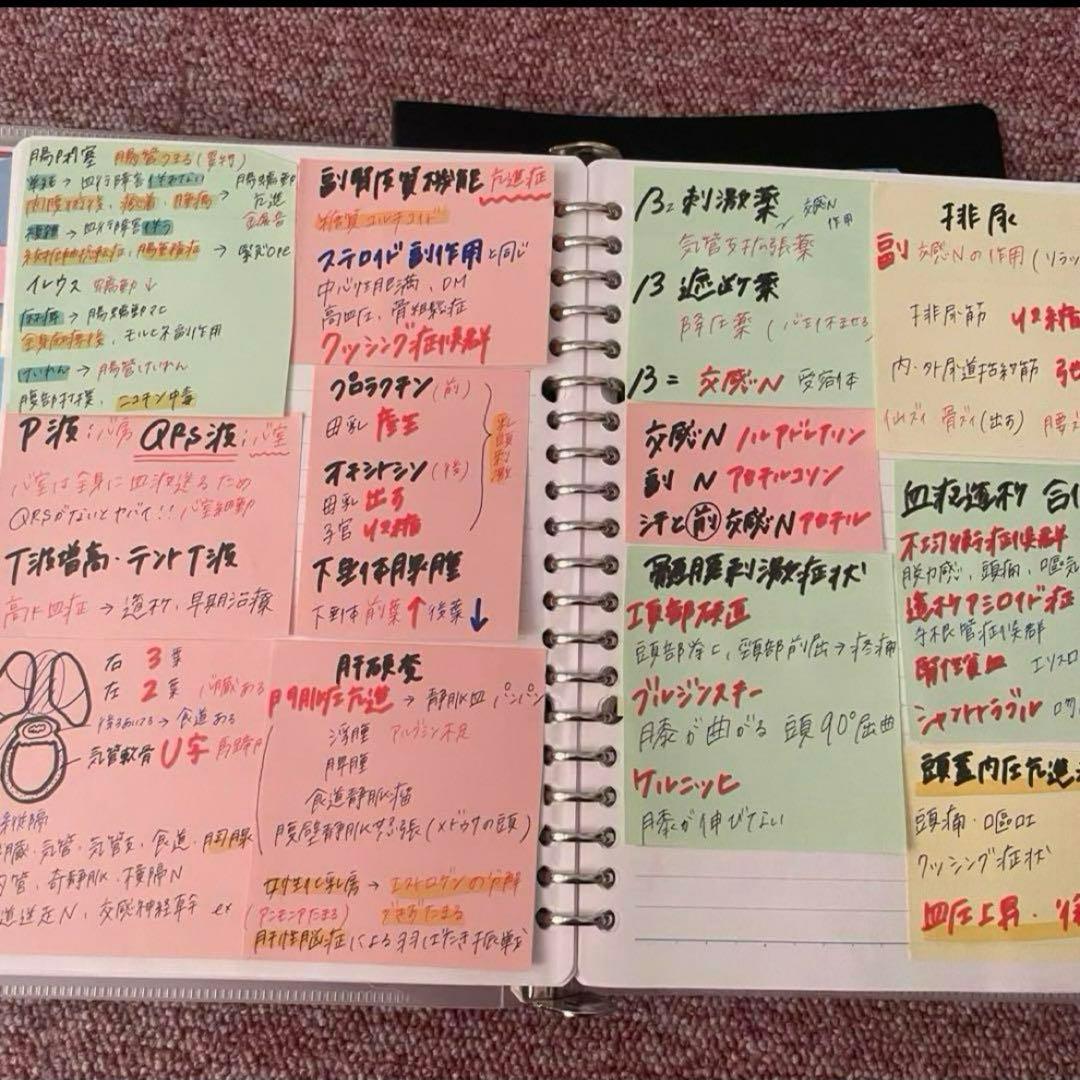 腸閉塞 腸管つまる(異物)
単純→血行障害伴わない
開腹術後、癒着、腫瘍→腸蠕動亢進
金属音
複雑→血行障害伴う
腸重積症→緊急OPE
イレウス 蠕動↓
麻痺→腸蠕動マヒ
全身麻酔後、モルヒネ副作用
けいれん→腸管けいれん
腹部打撲、ニコチン中毒
P波:心房 QRS波:心室
心室は全身に血液送るため
QRSがないとヤバイ!!心室細動
T波増高・テントT波
高K血症→透析、早期治療
右3葉
左2葉 心臓ある
後ろあいてる→食道ある
気管軟骨U字 馬蹄形
縦隔
心臓、気管、気管支、食道、胸腺
胸管、奇静脈、横隔N
迷走N、交感神経幹 ex
副腎皮質機能亢進症
糖質コルチコイド
ステロイド副作用と同じ
中心性肥満、DM
高血圧、骨粗鬆症
クッシング症候群
プロラクチン(前)
母乳 産生
オキシトシン(後)
母乳 出す
子宮 収縮
乳頭刺激
下垂体腺腫
下垂体前葉↑後葉↓
肝硬変
門脈圧亢進→静脈血パンパン
浮腫 アルブミン不足
脾腫
食道静脈瘤
腹壁静脈怒張(メドゥサの頭)
女性化乳房→エストロゲンの分解できずたまる
(アンモニアたまる)
肝性脳症による羽ばたき振戦
β2刺激薬 交感N作用
気管支拡張薬
β遮断薬
降圧薬(心拍させる
β=交感N受容体
交感N ノルアドレナリン
副N アセチルコリン
汗と前交感Nアセチル
髄膜刺激症状
項部硬直
頭部除く、頸部前屈→疼痛
ブルジンスキー
膝が曲がる 頭90°屈曲
ケルニッヒ
膝が伸びない
排尿
副交感Nの作用(リラッ
排尿筋 収縮
内・外尿道括約筋 弛
仙ズイ 骨ズイ(出す) 腰ズ
血液透析 合
不均衡症候群
脱力感、頭痛、嘔気
透析アミロイド症
手根管症候群
腎性貧血 エリスロ
シャントトラブル
頭蓋内圧亢進
頭痛・嘔吐
クッシング症状
血圧上昇・徐